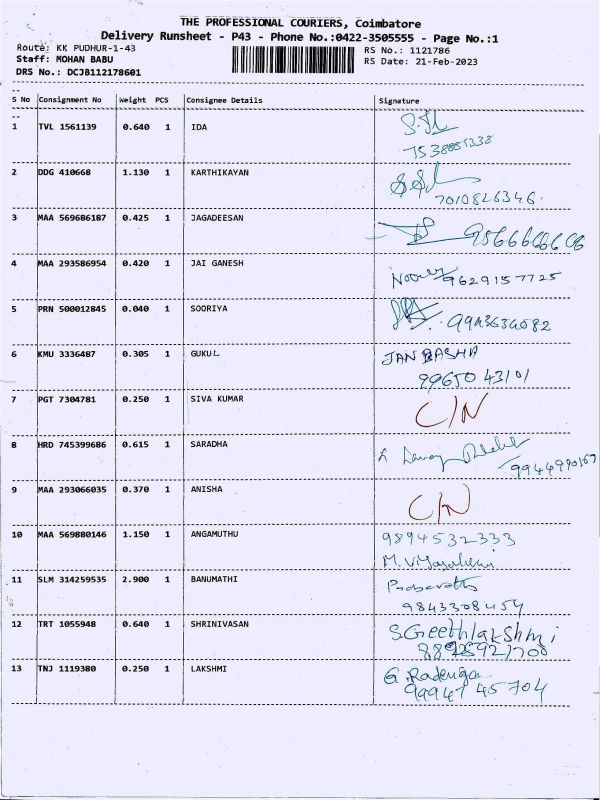 THE PROFESSIONAL COURIERS, Coimbatore
Delivery Runsheet - P43 - Phone No.:0422-3505555 - Page No.:1
Route: KK PUDHUR-1-43 RS No.: 1121786
Staff: MOHAN BABU RS Date: 21-Feb-2023
DRS No.: DCJB112178601
S No Consignment No Weight PCS Consignee Details Signature
1 TVL 1561139 0.640 1 IDA
2 DDG 410668 1.130 1 KARTHIKAYAN
7010826346
3 MAA 569686187 0.425 1 JAGADEESAN
4 MAA 293586954 0.420 1 JAI GANESH 9629157725
5 PRN 500012845 0.040 1 SOORIYA
6 KMU 3336487 0.305 1 GUKUL JAN BASHA
99650 43101
7 PGT 7304781 0.250 1 SIVA KUMAR C/N
8 HRD 745399686 0.615 1 SARADHA
9 MAA 293066035 0.370 1 ANISHA C/N
10 MAA 569880146 1.150 1 ANGAMUTHU 9894532333
11 SLM 314259535 2.900 1 BANUMATHI
9843308454
12 TRT 1055948 0.640 1 SHRINIVASAN S.Geethlakshmi
13 TNJ 1119380 0.250 1 LAKSHMI G.
99947 45704